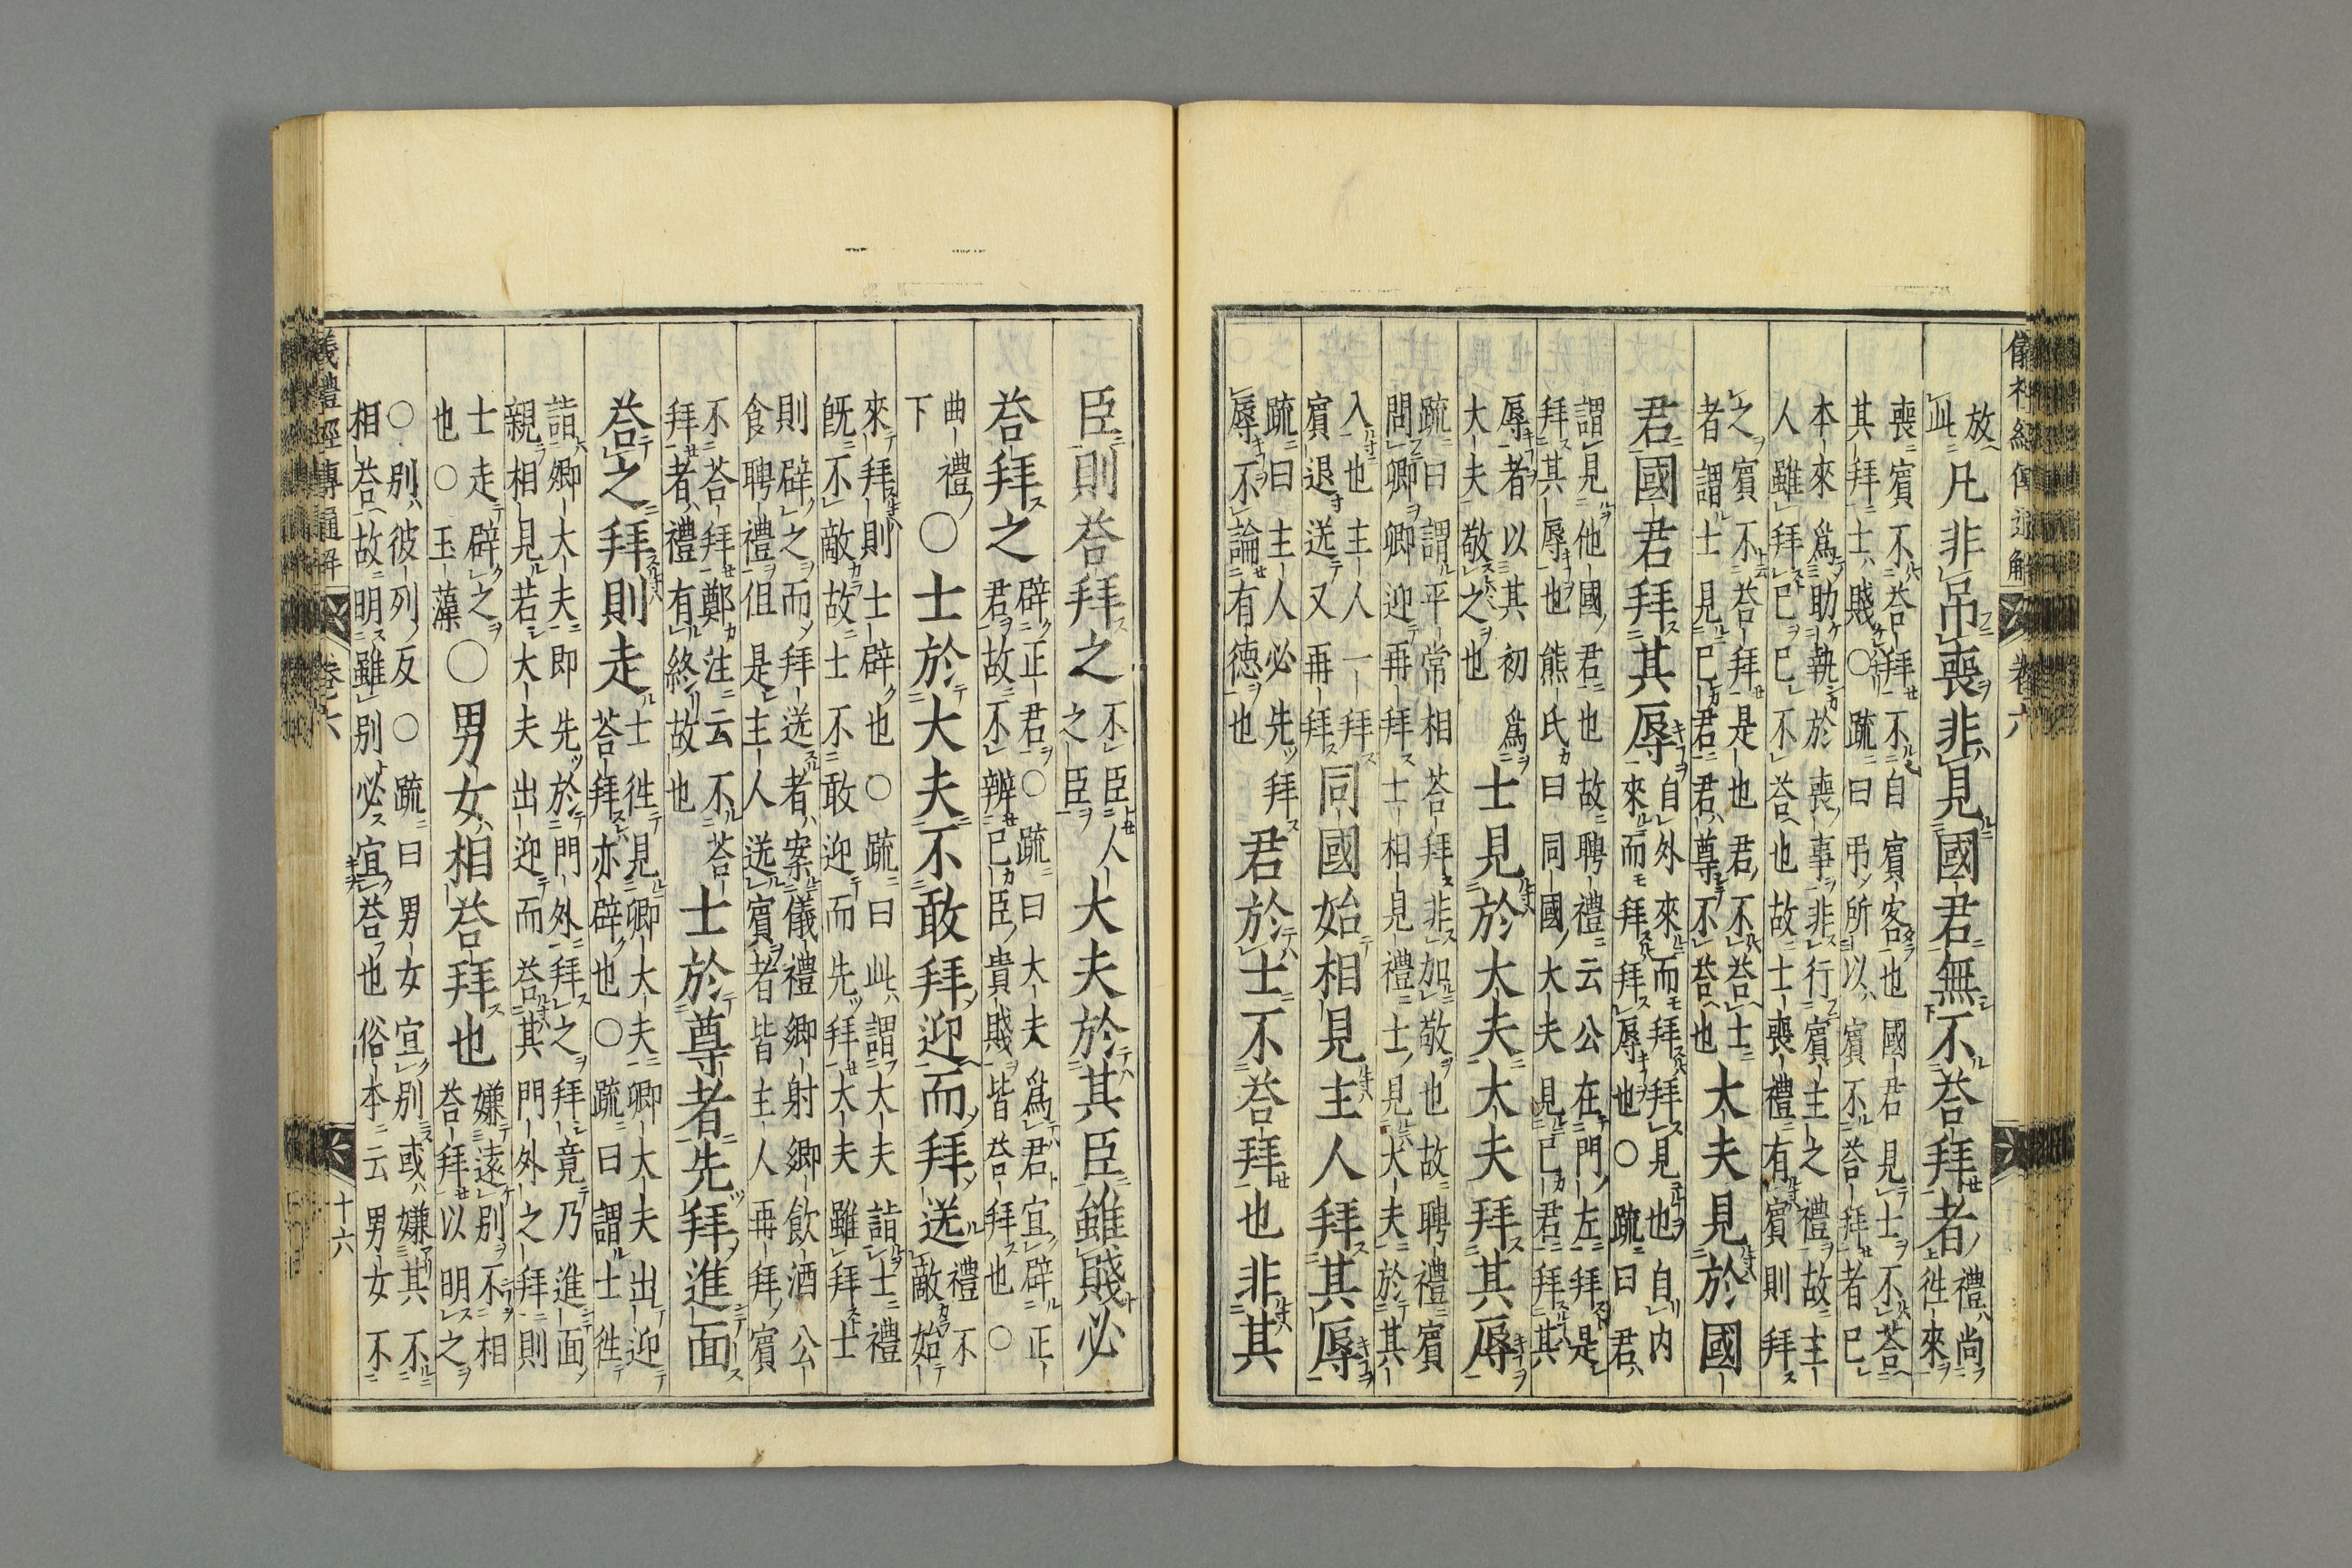 儀禮經傳通解 卷六
放
此
凡非吊喪非見國君無不荅拜者
禮尚
徃來
喪賓不荅拜不自賓客也國君見士不荅
其拜士賤○疏曰吊所以賓不荅拜者巳
本來爲助執於喪事非行賓主之禮故主
人雖拜巳巳不荅也故士喪禮有賓則拜
之賓不荅拜是也君不荅士
者謂士見巳君君尊不荅也
大夫見於國
君國君拜其辱
自外來而拜拜見也自内
來而拜拜辱也○疏曰君
謂見他國君也故聘禮云公在門左拜是
拜其辱也熊氏曰同國大夫見巳君拜其
辱者以其初爲
大夫敬之也
士見於大夫大夫拜其辱
疏曰謂平常相荅拜非加敬也故聘禮賓
問卿卿迎再拜士相見禮士見大夫於其
入也主人一拜
賓退送又再拜
同國始相見主人拜其辱
疏曰主人必先拜
辱不論有德也
君於士不荅拜也非其
臣則荅拜之
不臣人
之臣
大夫於其臣雖賤必
荅拜之
辟正君○疏曰大夫爲君宜辟正
君故不辨巳臣貴賤皆荅拜也○
曲禮
下
○士於大夫不敢拜迎而拜送
禮不
敵始
來拜則士辟也○疏曰此謂大夫詣士禮
旣不敵故士不敢迎而先拜大夫雖拜士
則辟之而拜送者案儀禮鄉射鄉飲酒公
食聘禮但是主人送賓者皆主人再拜賓
不荅拜鄭注云不荅
拜者禮有終故也
士於尊者先拜進面
荅之拜則走
士徃見卿大夫卿大夫出迎
荅拜亦辟也○疏曰謂士徃
詣卿大夫即先於門外拜之拜竟乃進面
親相見若大夫出迎而荅其門外之拜則
士走辟之
也○玉藻
○男女相荅拜也
嫌遠別不相
荅拜以明之
○別彼列反○疏曰男女宜別或嫌其不
相荅故明雖別必宜荅也俗本云男女不
儀禮經傳通解 卷六 十六